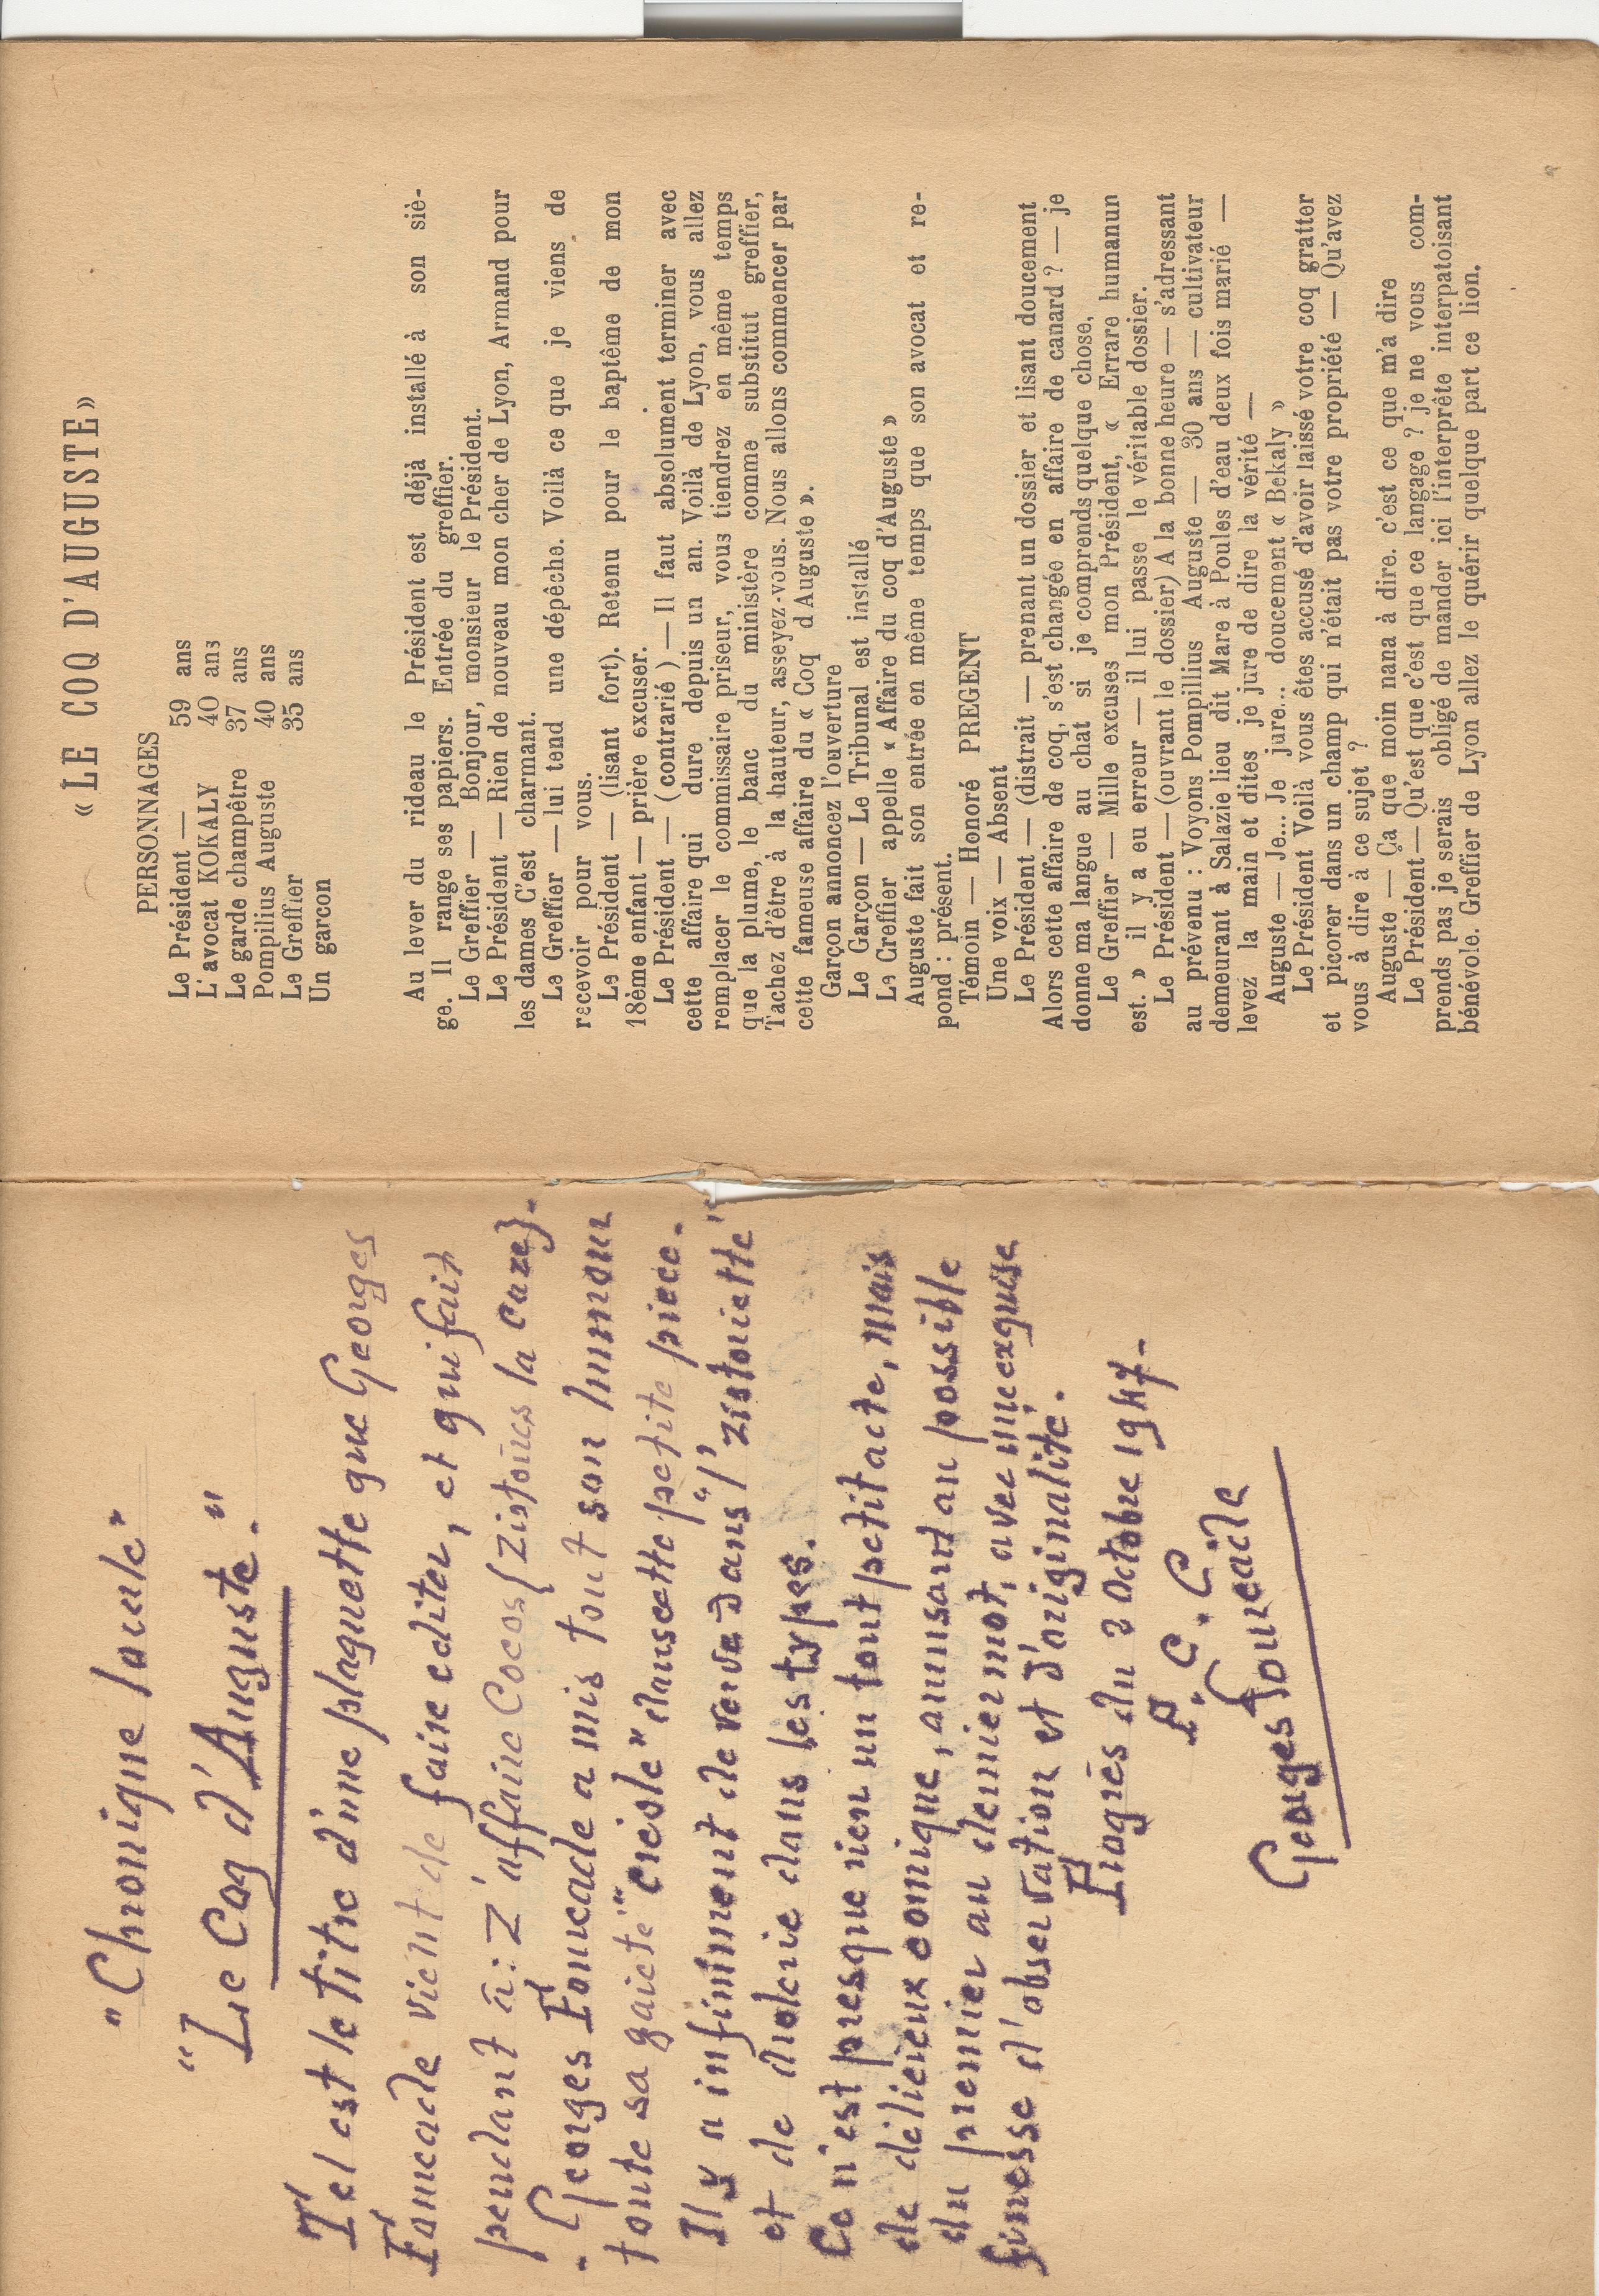 "Chronique locale"
"Le Coq d'Auguste."
Tel est le titre d'une plaquette que Georges
Foucade vient de faire editer, et qui fait
pendant à: Z'affaire Cocos {Zistoires la caze}.
- Georges Fourcade a mis tout son humour
toute sa gaieté "créole" dans cette petite pièce.
Il y a infiniment de verve dans "l'zistoriette"
et de drolerie dans les types.
Ce n'est presque rien un tout petit acte, mais
de délicieux comique, amusant au possible
du premier au dernier mot, avec une exquise
finesse d'observation et d'originalité.
Progrès du 2 Octobre 1947-
P.C.C.
Georges Fourcade
« LE COQ D'AUGUSTE »
PERSONNAGES
Le Président — 59 ans
L'avocat KOKALY 40 ans
Le garde champêtre 37 ans
Pompilius Auguste 40 ans
Le Greffier 35 ans
Un garçon
Au lever du rideau le Président est déjà installé à son siè-
ge. Il range ses papiers. Entrée du greffier.
Le Greffier — Bonjour, monsieur le Président.
Le Président — Rien de nouveau mon cher de Lyon, Armand pour
les dames C'est charmant.
Le Greffier — lui tend une dépêche. Voilà ce que je viens de
recevoir pour vous.
Le Président — (lisant fort). Retenu pour le baptême de mon
18ème enfant — prière excuser.
Le Président — (contrarié) — Il faut absolument terminer avec
cette affaire qui dure depuis un an. Voilà de Lyon, vous allez
remplacer le commissaire priseur, vous tiendrez en même temps
que la plume, le banc du ministère comme substitut greffier,
Tachez d'être à la hauteur, asseyez-vous. Nous allons commencer par
cette fameuse affaire du « Coq d'Auguste ».
Garçon annoncez l'ouverture
Le Garçon — Le Tribunal est installé
Le Creffier appelle « Affaire du coq d'Auguste »
Auguste fait son entrée en même temps que son avocat et re-
pond : présent.
Témoin — Honoré PREGENT
Une voix — Absent
Le Président — (distrait — prenant un dossier et lisant doucement
Alors cette affaire de coq, s'est changée en affaire de canard ? — je
donne ma langue au chat si je comprends quelque chose,
Le Greffier — Mille excuses mon Président, « Errare humanun
est. » il y a eu erreur — il lui passe le véritable dossier.
Le Président — (ouvrant le dossier) A la bonne heure — s'adressant
au prévenu : Voyons Pompillius Auguste — 30 ans — cultivateur
demeurant à Salazie lieu dit Mare à Poules d'eau deux fois marié —
levez la main et dites je jure de dire la vérité —
Auguste — Je... Je jure... doucement « Bekaly »
Le Président Voilà vous êtes accusé d'avoir laissé votre coq gratter
et picorer dans un champ qui n'était pas votre propriété — Qu'avez
vous à dire à ce sujet ?
Auguste — Ça que moin nana à dire. c'est ce que m'a dire
Le Président — Qu'est que c'est que ce langage ? je ne vous com-
prends pas je serais obligé de mander ici l'interprête interpatoisant
bénévole. Greffier de Lyon allez le quérir quelque part ce lion.